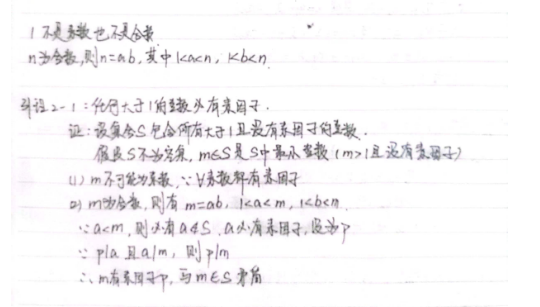 1不是素数也不是合数
n为合数,则n=ab,其中1<a<n, 1<b<n.
引理2-1:任何大于1的整数必有素因子.
证:设集合S包含所有大于1且没有素因子的整数.
假设S不为空集, m∈S是S中最小整数(m>1且没有素因子)
(1) m不可能为素数,∵∀素数都有素因子
(2) m为合数,则有 m=ab, 1<a<m, 1<b<m.
∵a<m, 则必有a∉S, a必有素因子,设为p
∵ p|a 且a|m, 则p|m
∴ m有素因子p,与m∈S矛盾